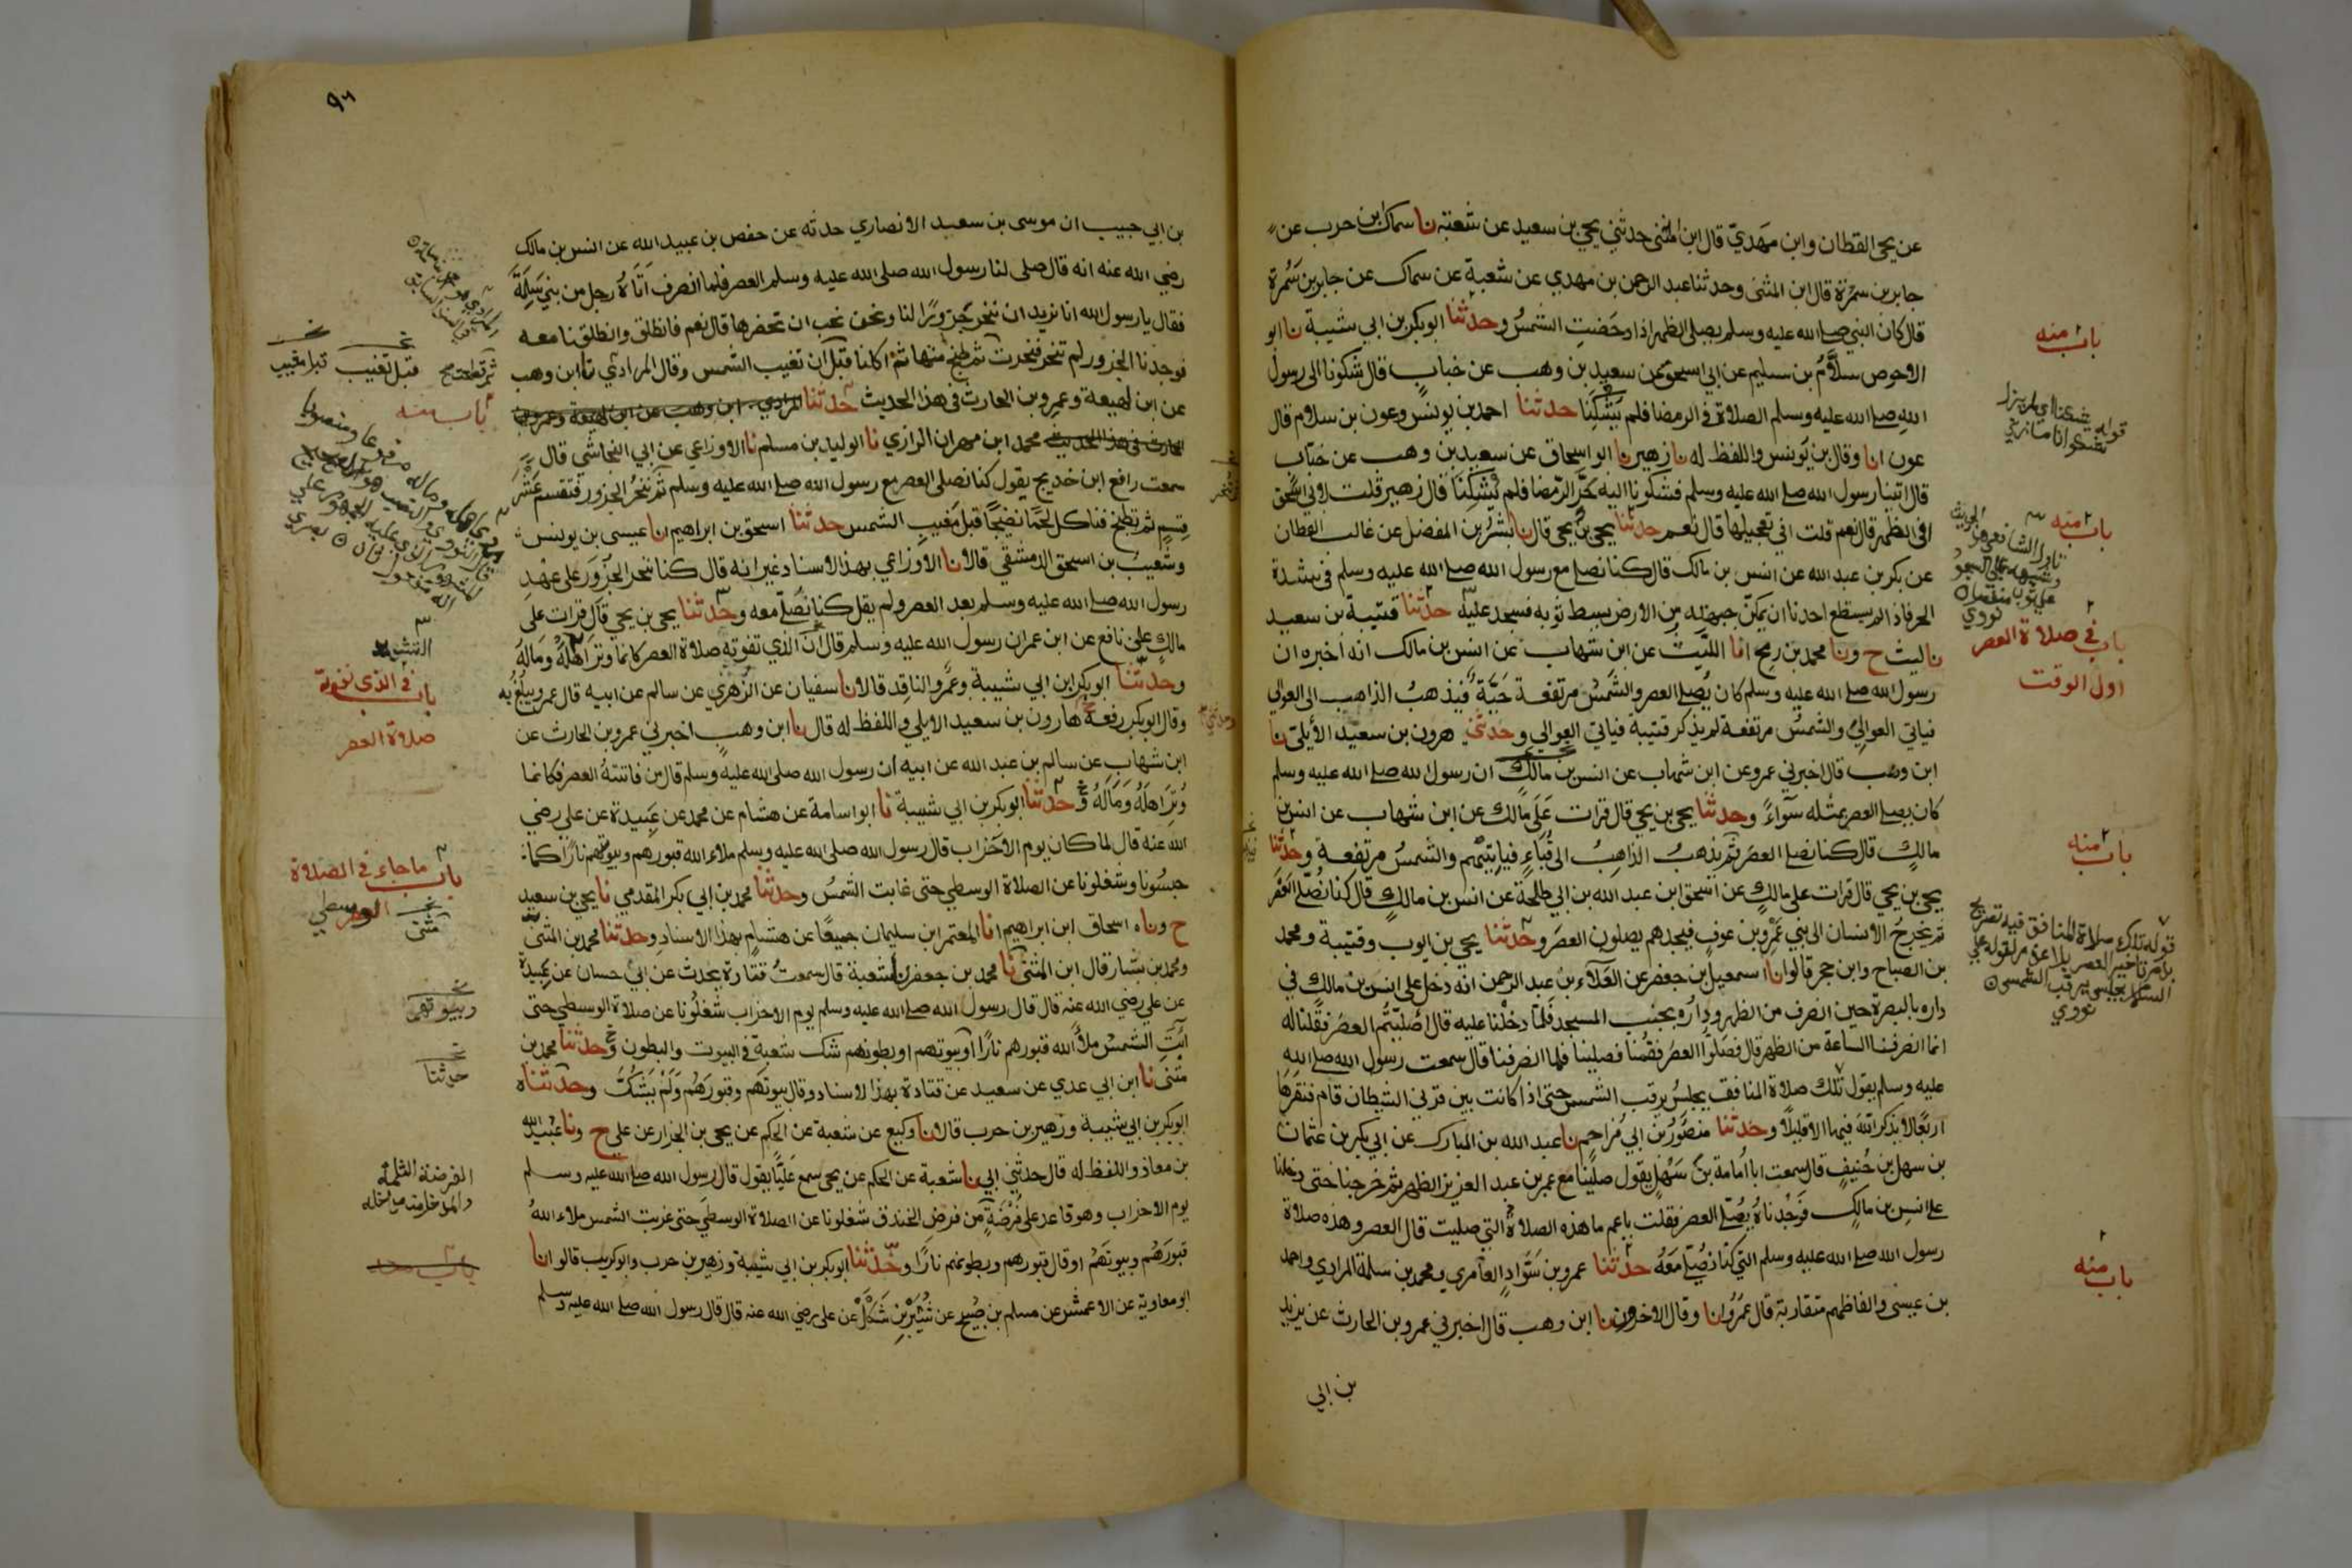 عن يحيى القطان وابن مهدي قال ابن المثنى حدثني يحيى بن سعيد عن شعبة نا سماك بن حرب عن
جابر بن سمرة قال ابن المثنى وحدثنا عبد الرحمن بن مهدي عن شعبة عن سماك عن جابر بن سمرة
قال كان النبي صلى الله عليه وسلم يصلي الظهر اذا دحضت الشمس وحدثنا ابو بكر بن ابي شيبة نا ابو
الاحوص سلام بن سليم عن ابي اسحق عن سعيد بن وهب عن خباب قال شكونا الى رسول
الله صلى الله عليه وسلم الصلاة في الرمضا فلم يشكنا حدثنا احمد بن يونس وعون بن سلام قال
عون انا وقال بن يونس واللفظ له نا زهير نا ابو اسحاق عن سعيد بن وهب عن خباب
قال اتينا رسول الله صلى الله عليه وسلم فشكونا اليه حر الرمضا فلم يشكنا قال زهير قلت لابي اسحق
افي الظهر قال نعم قلت افي تعجيلها قال نعم حدثنا يحيى بن يحيى قال نا بشر بن المفضل عن غالب القطان
عن بكر بن عبد الله عن انس بن مالك قال كنا نصلي مع رسول الله صلى الله عليه وسلم في شدة
الحر فاذا لم يستطع احدنا ان يمكن جبهته من الارض بسط ثوبه فسجد عليه حدثنا قتيبة بن سعيد
نا ليث ح ونا محمد بن رمح انا الليث عن ابن شهاب عن انس بن مالك انه اخبره ان
رسول الله صلى الله عليه وسلم كان يصلي العصر والشمس مرتفعة حية فيذهب الذاهب الى العوالي
فياتي العوالي والشمس مرتفعة لم يذكر قتيبة فياتي العوالي وحدثني هرون بن سعيد الأيلي نا
ابن وهب قال اخبرني عمرو عن ابن شهاب عن انس بن مالك ان رسول الله صلى الله عليه وسلم
كان يصلي العصر بمثله سواء وحدثنا يحيى بن يحيى قال قرات على مالك عن ابن شهاب عن انس بن
مالك قال كنا نصلي العصر ثم يذهب الذاهب الى قباء فياتيهم والشمس مرتفعة وحدثنا
يحيى بن يحيى قال قرات على مالك عن اسحق ابن عبد الله بن ابي طلحة عن انس بن مالك قال كنا نصلي العصر
ثم يخرج الانسان الى بني عمرو بن عوف فيجدهم يصلون العصر وحدثنا يحيى بن ايوب وقتيبة ومحمد
بن الصباح وابن حجر قالوا نا اسمعيل بن جعفر عن العلاء بن عبد الرحمن انه دخل على انس بن مالك في
داره بالبصرة حين انصرف من الظهر وداره بجنب المسجد فلما دخلنا عليه قال أصليتم العصر فقلنا له
انما انصرفنا الساعة من الظهر قال فصلوا العصر فقمنا فصلينا فلما انصرفنا قال سمعت رسول الله صلى الله
عليه وسلم يقول تلك صلاة المنافق يجلس يرقب الشمس حتى اذا كانت بين قرني الشيطان قام فنقرها
اربعا لا يذكر الله فيها الا قليلا وحدثنا منصور بن ابي مزاحم نا عبد الله بن المبارك عن ابي بكر بن عثمان
بن سهل بن حنيف قال سمعت ابا أمامة بن سهل يقول صلينا مع عمر بن عبد العزيز الظهر ثم خرجنا حتى دخلنا
على انس بن مالك فوجدناه يصلي العصر فقلت يا عم ما هذه الصلاة التي صليت قال العصر وهذه صلاة
رسول الله صلى الله عليه وسلم التي كنا نصلي معه حدثنا عمرو بن سواد العامري ومحمد بن سلمة المرادي واحمد
بن عيسى والفاظهم متقاربة قال عمرو انا وقال الاخرون نا ابن وهب قال اخبرني عمرو بن الحارث عن يزيد
بن ابي
باب منه
باب منه
باب في صلاة العصر
اول الوقت
باب منه
قوله تلك صلاة المنافق فيه تصريح
نووي
باب منه
٩٦
بن ابي حبيب ان موسى بن سعيد الانصاري حدثه عن حفص بن عبيد الله عن انس بن مالك
رضي الله عنه انه قال صلى لنا رسول الله صلى الله عليه وسلم العصر فلما انصرف أتاه رجل من بني سلمة
فقال يا رسول الله انا نريد ان ننحر جزورا لنا ونحن نحب ان تحضرها قال نعم فانطلق وانطلقنا معه
فوجدنا الجزور لم تنحر فنحرت ثم طبخ منها ثم اكلنا قبل أن تغيب الشمس وقال المرادي نا ابن وهب
عن ابن لهيعة وعمرو بن الحارث في هذا الحديث حدثنا المرادي ابن وهب عن ابن لهيعة وعمرو بن
الحارث في هذا الحديث محمد ابن مهران الرازي نا الوليد بن مسلم نا الاوزاعي عن ابي النجاشي قال
سمعت رافع ابن خديج يقول كنا نصلي العصر مع رسول الله صلى الله عليه وسلم ثم ننحر الجزور فتقسم عشر
قسم ثم تطبخ فناكل لحما نضيجا قبل مغيب الشمس حدثنا اسحق بن ابراهيم انا عيسى بن يونس
وشعيب بن اسحق الدمشقي قالا نا الاوزاعي بهذا الاسناد غير انه قال كنا ننحر الجزور على عهد
رسول الله صلى الله عليه وسلم بعد العصر ولم يقل كنا نصلي معه وحدثنا يحيى بن يحيى قال قرات على
مالك على نافع عن ابن عمر ان رسول الله عليه وسلم قال ان الذي تفوته صلاة العصر كانما وتر اهله وماله
وحدثنا ابو بكر ابن ابي شيبة وعمرو الناقد قالا نا سفيان عن الزهري عن سالم عن ابيه قال عمرو يبلغ به
وقال ابو بكر رفعه هارون بن سعيد الايلي واللفظ له قال نا ابن وهب اخبرني عمرو بن الحارث عن
ابن شهاب عن سالم بن عبد الله عن ابيه ان رسول الله صلى الله عليه وسلم قال من فاتته العصر فكانما
وتر اهله وماله وحدثنا ابو بكر بن ابي شيبة نا ابو اسامة عن هشام عن محمد عن عبيدة عن علي رضي
الله عنه قال لما كان يوم الاحزاب قال رسول الله صلى الله عليه وسلم ملاء الله قبورهم وبيوتهم نارا كما
حبسونا وشغلونا عن الصلاة الوسطي حتى غابت الشمس وحدثنا محمد بن ابي بكر المقدمي نا يحيى بن سعيد
ح وناه اسحاق ابن ابراهيم انا المعتمر ابن سليمان جميعا عن هشام بهذا الاسناد وحدثنا محمد بن المثنى
ومحمد بن بشار قال ابن المثنى نا محمد بن جعفر نا شعبة قال سمعت قتادة يحدث عن ابي حسان عن عبيدة
عن علي رضي الله عنه قال قال رسول الله صلى الله عليه وسلم يوم الاحزاب شغلونا عن صلاة الوسطي حتى
آبت الشمس ملأ الله قبورهم نارا أو بيوتهم او بطونهم شك شعبة في البيوت والبطون وحدثنا محمد بن
مثنى نا ابن ابي عدي عن سعيد عن قتادة بهذا الاسناد وقال بيوتهم وقبورهم ولم يشك وحدثناه
ابو بكر بن ابي شيبة وزهير بن حرب قالا نا وكيع عن شعبة عن الحكم عن يحيى بن الجزار عن علي ح ونا عبيد الله
بن معاذ واللفظ له قال حدثني ابي نا شعبة عن الحكم عن يحيى سمع عليا يقول قال رسول الله صلى الله عليه وسلم
يوم الاحزاب وهو قاعد على فرضة من فرض الخندق شغلونا عن الصلاة الوسطي حتى غربت الشمس ملاء الله
قبورهم وبيوتهم او قال قبورهم وبطونهم نارا وحدثنا ابو بكر بن ابي شيبة وزهير بن حرب وابو كريب قالوا نا
ابو معاوية عن الاعمش عن مسلم بن صبيح عن شتير بن شكل عن علي رضي الله عنه قال قال رسول الله صلى الله عليه وسلم
قبل تغيب
قبل مغيب
باب منه
باب في الذي تفوته
صلاة العصر
باب ما جاء في الصلاة
الوسطي
مثنى
وبيوتهم
حدثنا
الفرضة الثلمة